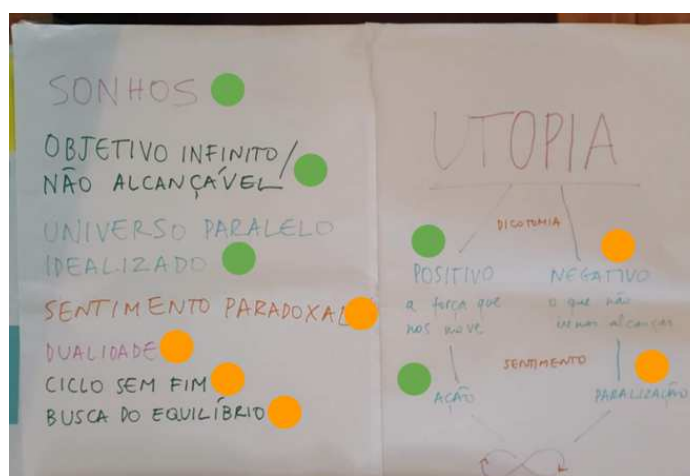 SONHOS
OBJETIVO INFINITO/
NÃO ALCANÇÁVEL
UNIVERSO PARALELO
IDEALIZADO
SENTIMENTO PARADOXAL
DUALIDADE
CICLO SEM FIM
BUSCA DO EQUILÍBRIO
UTOPIA
DICOTOMIA
POSITIVO NEGATIVO
a força que o que não
nos move iremos alcançar
SENTIMENTO
AÇÃO PARALIZAÇÃO